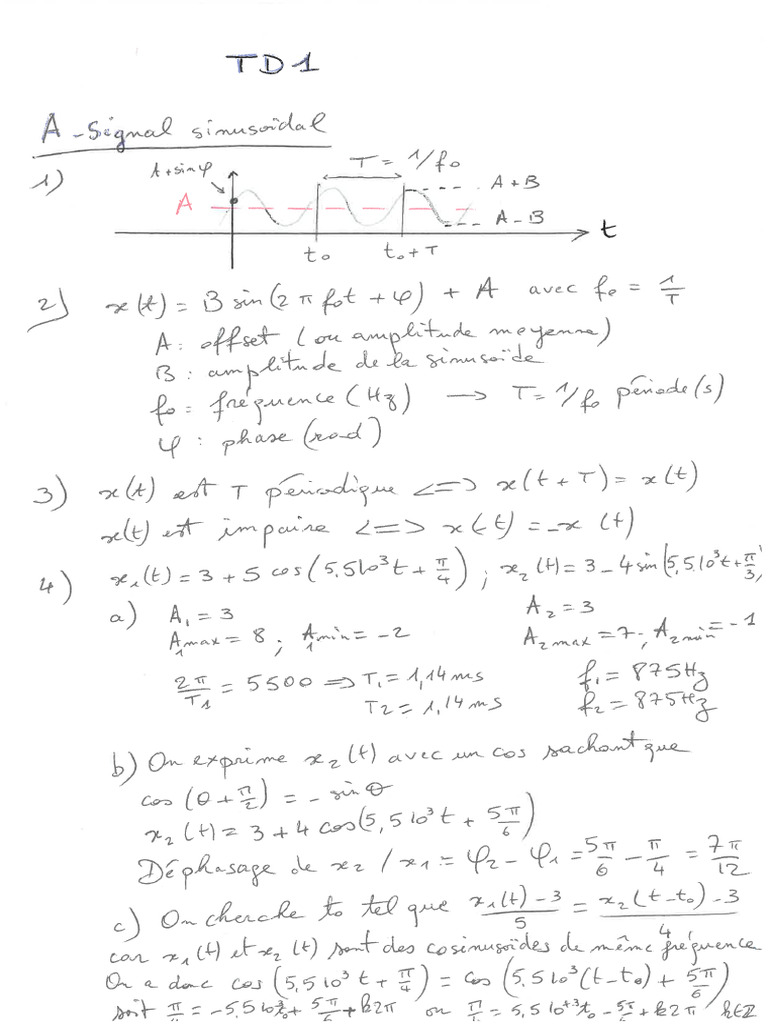 TD1
A - Signal sinusoïdal
1)
A + sin φ
T = 1/f₀
A
A + B
A - B
t
t₀
t₀ + T
2) x(t) = B sin(2 π f₀t + φ) + A avec f₀ = 1/T
A : offset (ou amplitude moyenne)
B : amplitude de la sinusoïde
f₀ = fréquence (Hz) → T = 1/f₀ période (s)
φ : phase (rad)
3) x(t) est T périodique <=> x(t + T) = x(t)
x(t) est impaire <=> x(-t) = -x(t)
4) x₁(t) = 3 + 5 cos(5,5 10³ t + π/4) ; x₂(t) = 3 - 4 sin(5,5 10³ t + π/3)
a) A₁ = 3 A₂ = 3
A₁max = 8 ; A₁min = -2 A₂max = 7 ; A₂min = -1
2π/T₁ = 5500 => T₁ = 1,14 ms f₁ = 875 Hz
T₂ = 1,14 ms f₂ = 875 Hz
b) On exprime x₂(t) avec un cos sachant que
cos(θ + π/2) = - sin θ
x₂(t) = 3 + 4 cos(5,5 10³ t + 5π/6)
Déphasage de x₂ / x₁ = φ₂ - φ₁ = 5π/6 - π/4 = 7π/12
c) On cherche to tel que (x₁(t) - 3)/5 = (x₂(t - t₀) - 3)/4
car x₁(t) et x₂(t) sont des cosinusoïdes de même fréquence
On a donc cos(5,5 10³ t + π/4) = cos(5,5 10³(t - t₀) + 5π/6)
soit π/4 = -5,5 10³t₀ + 5π/6 + k2π ou π/4 = 5,5 10⁺³t₀ - 5π/6 + k2π k∈Z